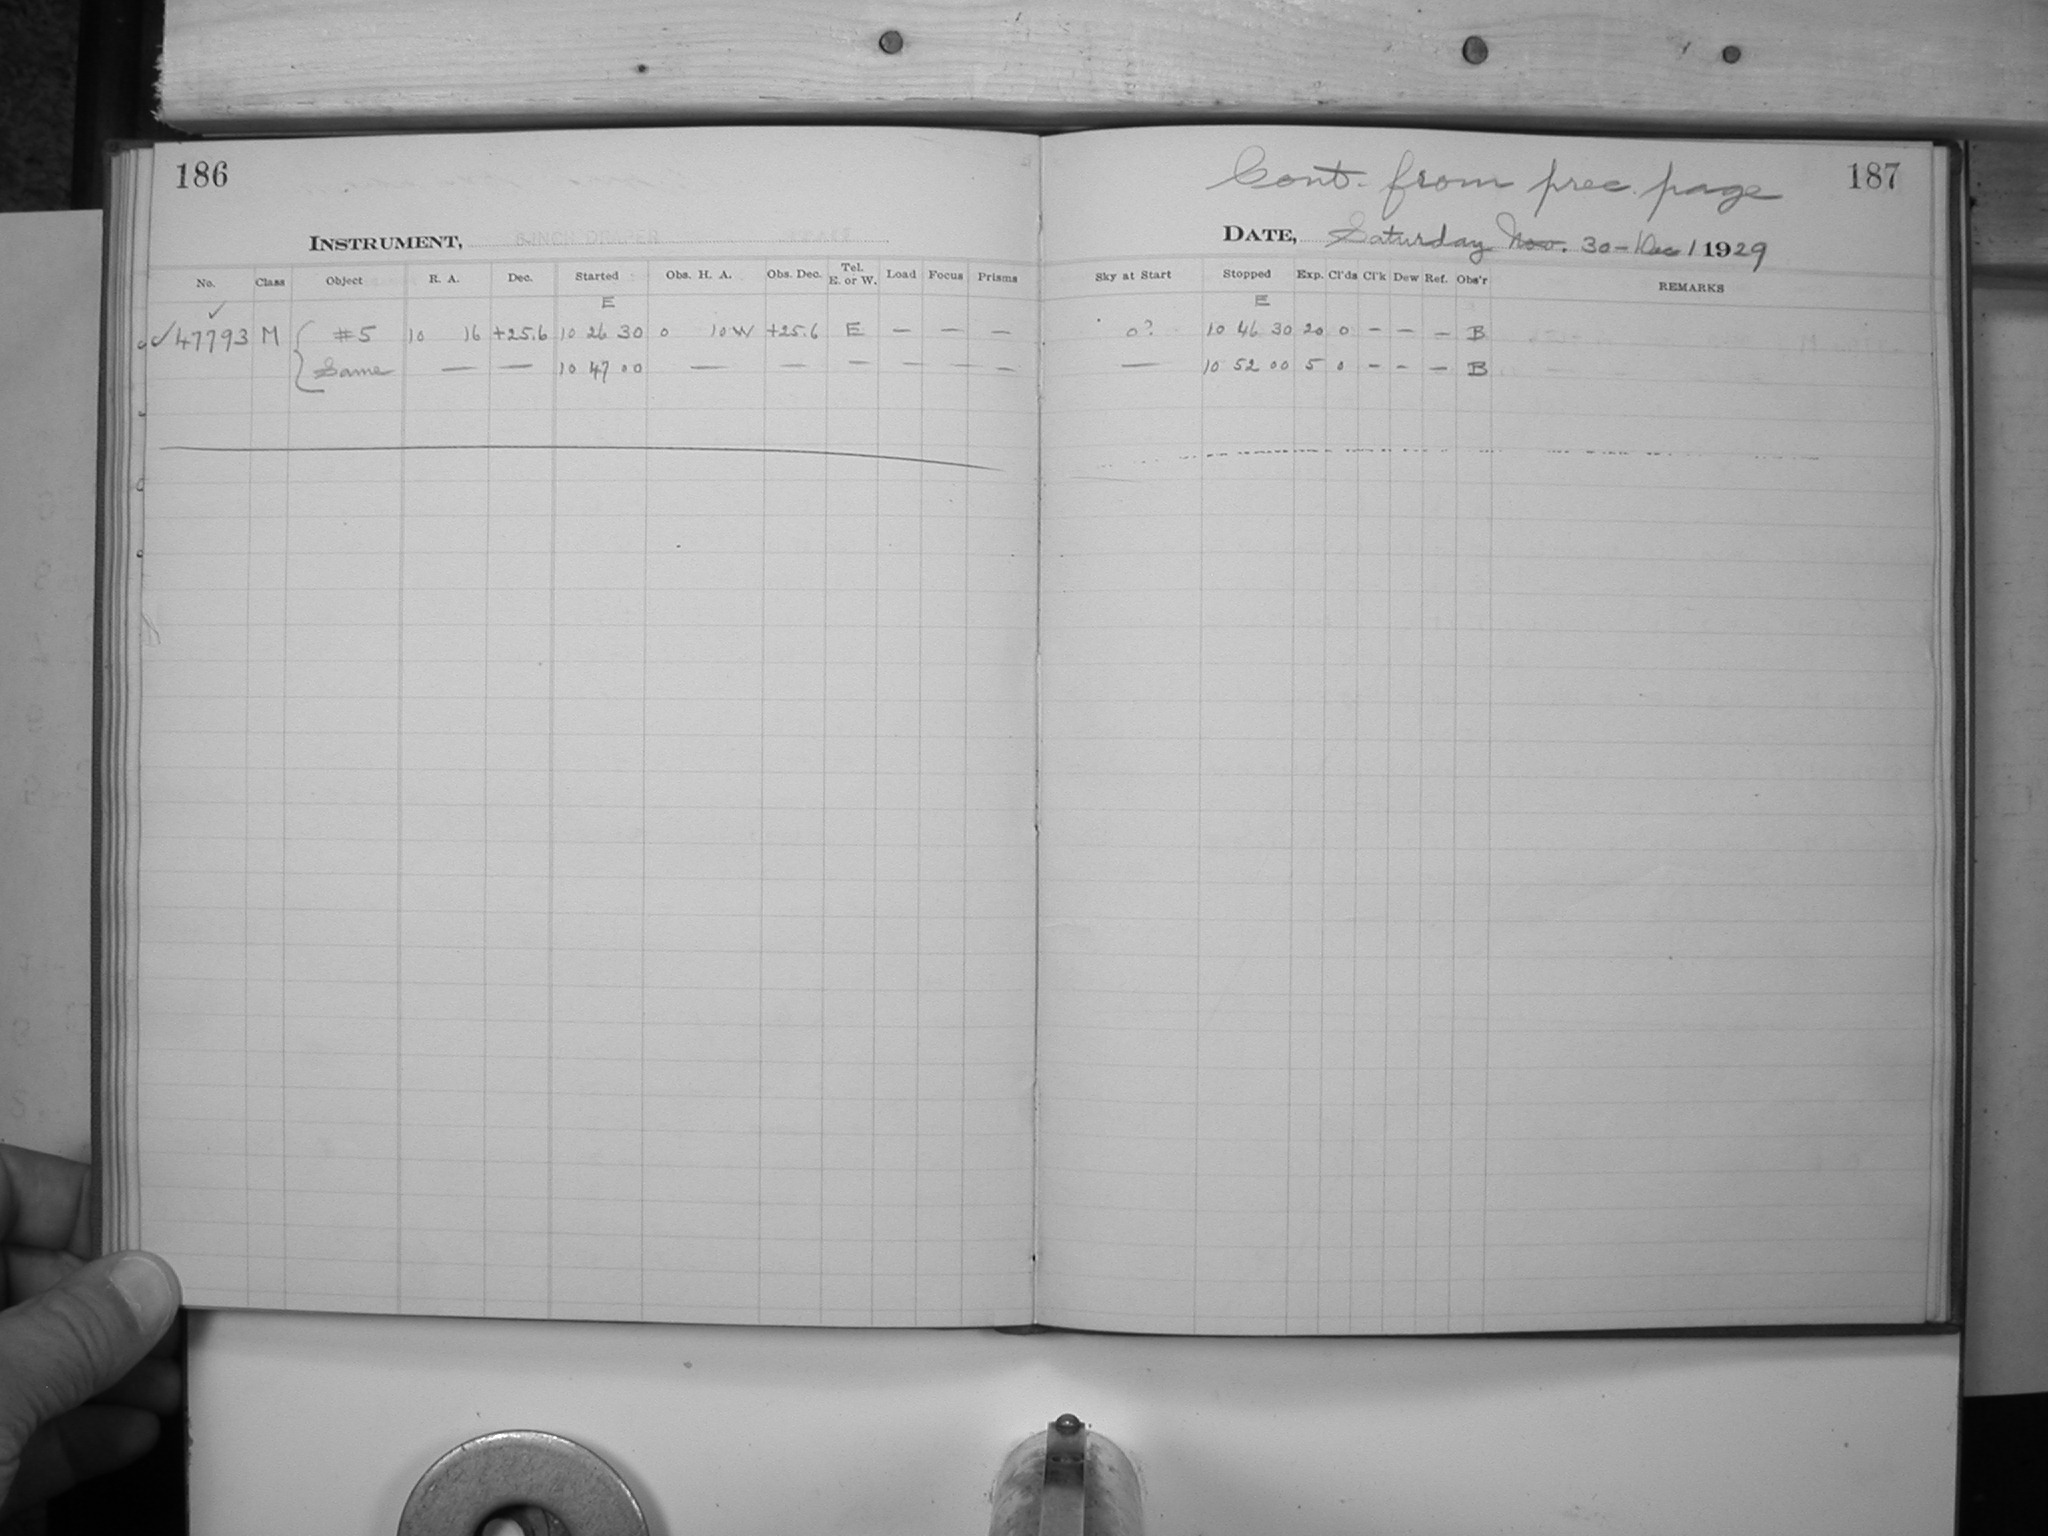 186
INSTRUMENT,
No. Class Object R. A. Dec. Started Obs. H. A. Obs. Dec. Tel. E. or W. Load Focus Prisms
E
✓
✓47793 M #5 10 16 +25.6 10 26 30 0 10 W +25.6 E — — —
Same — — 10 47 00 — — — — — —
Cont. from prec. page 187
DATE, Saturday Nov. 30 – Dec 1 1929
Sky at Start Stopped Exp. Cl'ds Cl'k Dew Ref. Obs'r REMARKS
E
0? 10 46 30 20 0 – – – B
— 10 52 00 5 0 – – – B